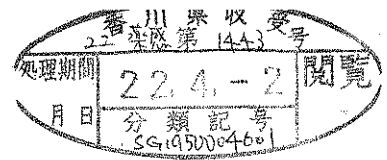 香川県収受
22薬感第1443号
処理期間
22.4.-2
閲覧
月日
分類記号
SG1950004601